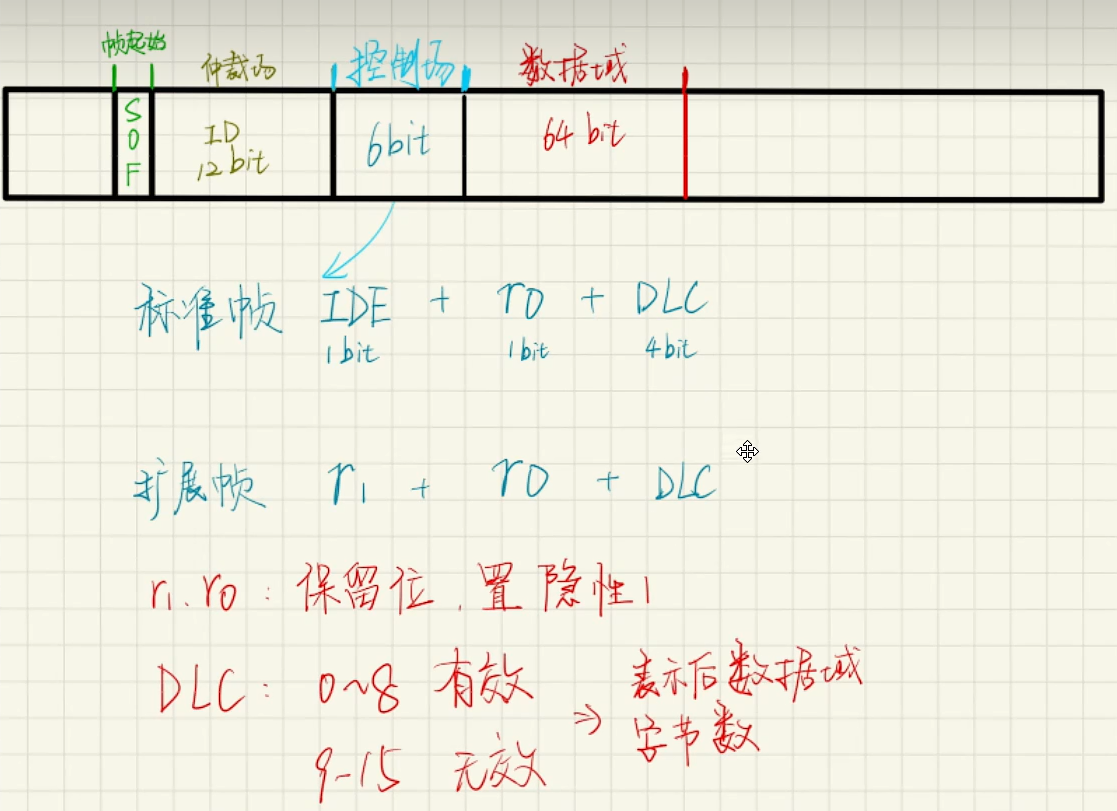 帧起始
仲裁场 控制场 数据域
SOF
ID
12bit
6bit
64 bit
标准帧 IDE + r0 + DLC
1bit 1bit 4bit
扩展帧 r1 + r0 + DLC
r1.r0:保留位.置隐性1
DLC: 0~8 有效
9-15 无效
⇒ 表示后数据域
字节数